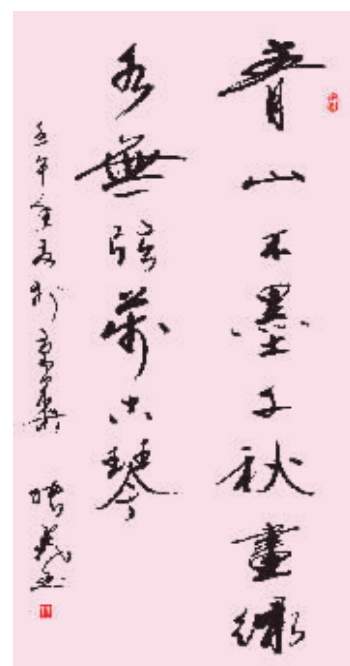 青山不墨千秋畫綠
水無弦萬古琴
壬午夏於京華